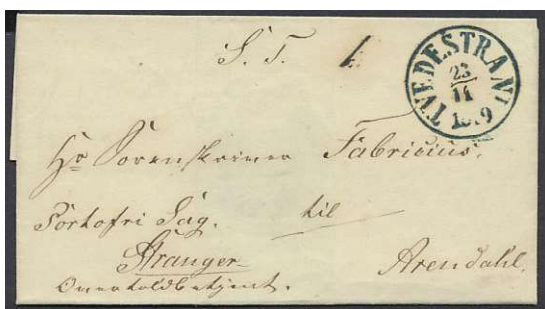 S. T.
TVEDESTRAND
23
11
Hr Sorenskriver Fabricius.
Portofri Sag. til
Stranger Arendahl.